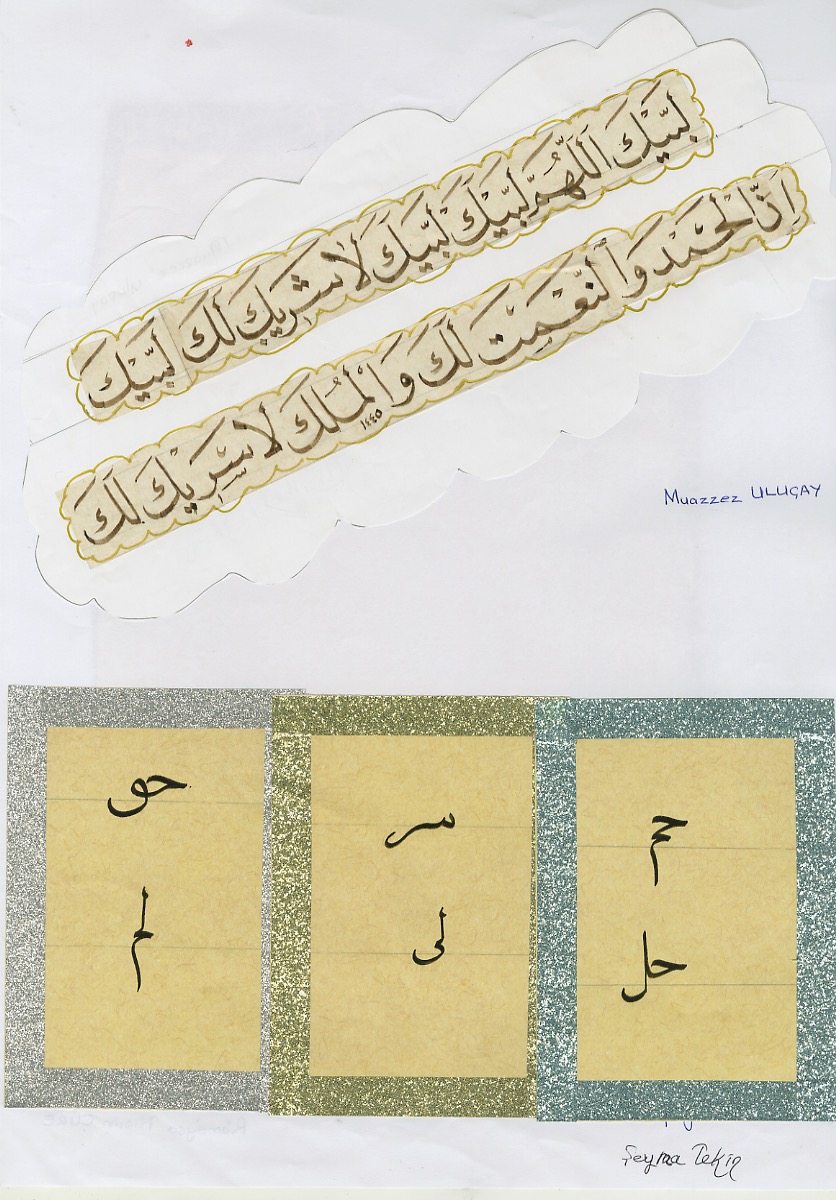 لبّيْكَ اَللّٰهُمَّ لبّيْكَ لبّيْكَ لاَ شَرِيكَ لَكَ لبّيْكَ
اِنَّ الْحَمْدَ وَالنِّعْمِتَ لَكَ وَالْمُلْكَ لاَ سَرِيكَ لَكَ
١٤٤٥
Muazzez ULUÇAY
حم
حل
سر
لى
حو
لم
Şeyma Tekin